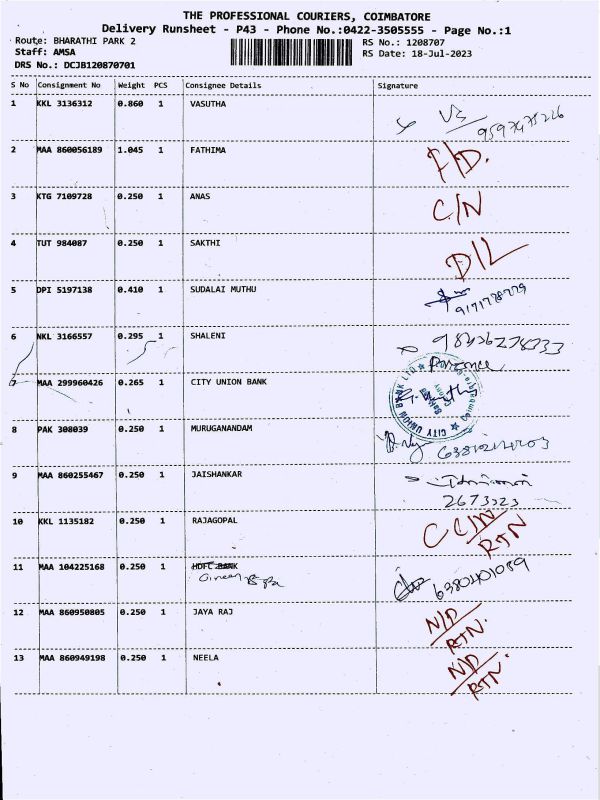 THE PROFESSIONAL COURIERS, COIMBATORE
Delivery Runsheet - P43 - Phone No.:0422-3505555 - Page No.:1
Route: BHARATHI PARK 2 RS No.: 1208707
Staff: AMSA RS Date: 18-Jul-2023
DRS No.: DCJB120870701
S No Consignment No Weight PCS Consignee Details Signature
1 KKL 3136312 0.860 1 VASUTHA
2 MAA 860056189 1.045 1 FATHIMA F/D.
3 KTG 7109728 0.250 1 ANAS C/N
4 TUT 984087 0.250 1 SAKTHI D/L
5 DPI 5197138 0.410 1 SUDALAI MUTHU
6 NKL 3166557 0.295 1 SHALENI
MAA 299960426 0.265 1 CITY UNION BANK
CITY UNION BANK LTD
8 PAK 308039 0.250 1 MURUGANANDAM
9 MAA 860255467 0.250 1 JAISHANKAR
2673323
10 KKL 1135182 0.250 1 RAJAGOPAL C C/N
RTN
11 MAA 104225168 0.250 1 HDFC BANK 6380401089
12 MAA 860950805 0.250 1 JAYA RAJ N/D
RTN.
13 MAA 860949198 0.250 1 NEELA N/D
RTN.